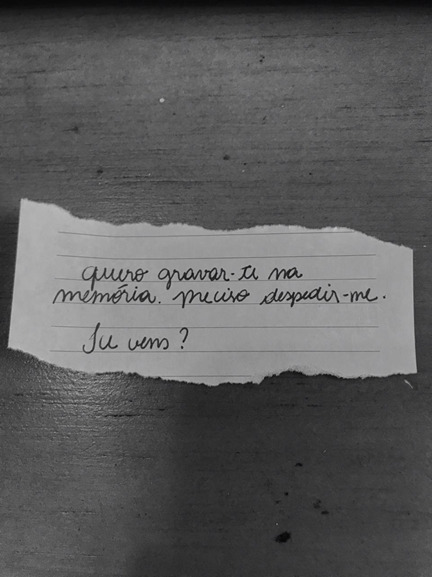 quero gravar-te na
memória. preciso despedir-me.
Tu vens?